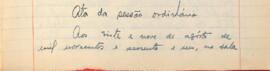 Ata da sessão ordinária
Aos vinte e nove de agôsto de
mil novecentos e sessenta e seis, na sala